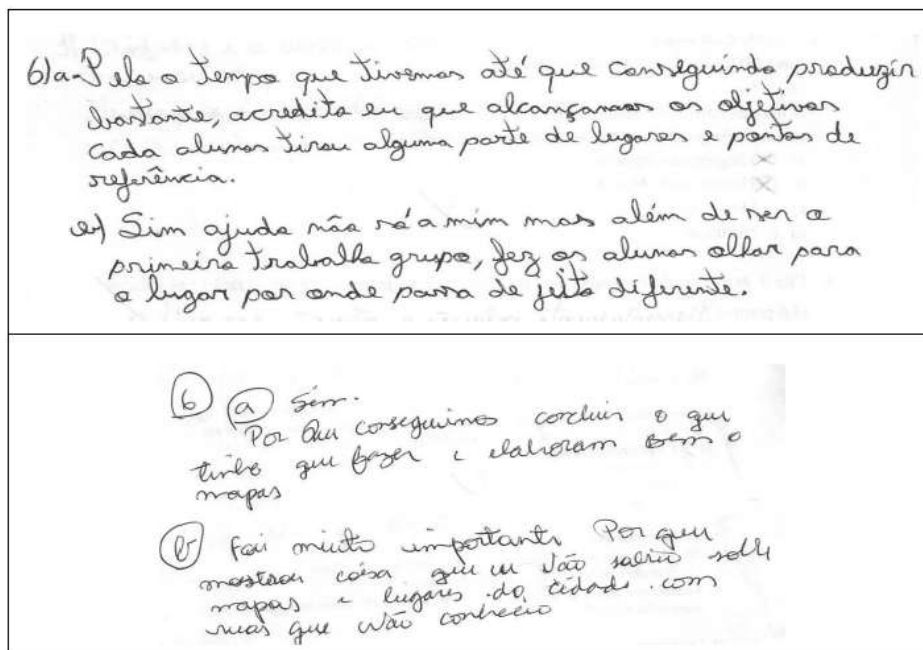 6)a- Pelo o tempo que tivemos até que conseguindo produzir
bastante, acredito eu que alcançamos os objetivos
cada alunos tirou alguma parte de lugares e pontos de
referência.
b) Sim ajuda não só a mim mas além de ser o
primeiro trabalho grupo, fez os alunos olhar para
o lugar por onde passa de jeito diferente.
6 a Sim.
Por Que conseguimos concluir o que
tinha que fazer e elaboram bem o
mapas
b Foi muito importante Por que
mostrou coisa que eu Não sabia sobre
mapas e lugares da cidade com
ruas que Não conhecia